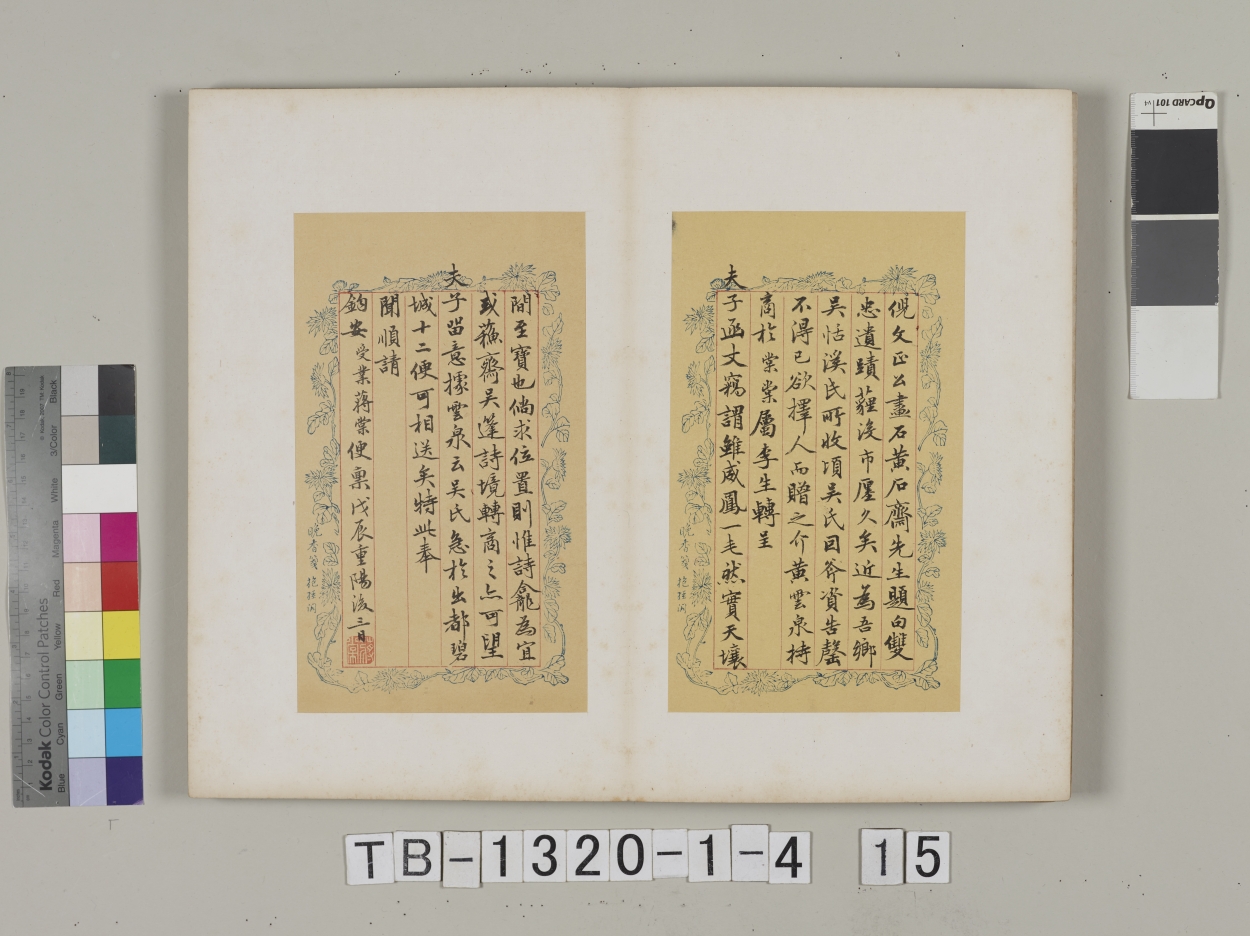 倪文正公畫石黃石齋先生題句雙
忠遺蹟薶沒市廛久矣近爲吾鄉
吳恬溪民所收頃吳氏因斧資告罄
不得已欲擇人而贈之介黃雲泉持
商於棠棠屬李生轉呈
夫子函丈竊謂雖威鳳一毛然實天壤
間至寶也倘求位置則惟詩龕爲宜
或蘇齋吳蓬詩境轉商之亦可望
夫子留意據雲泉云吳氏急於出都碧
城十二便可相送矣特此奉
聞順請
鈞安受業蔣棠便稟戊辰重陽後三日
晚香箋
晚香箋
Kodak Color Control Patches
Blue Cyan Green Yellow Red Magenta White 3/Color Black
QPCARD 101 v4
TB-1320-1-4 15